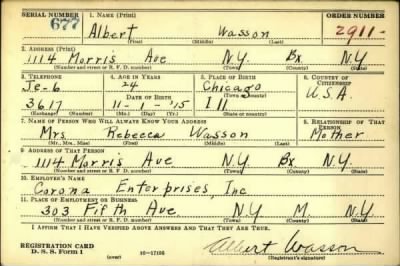 SERIAL NUMBER 1. NAME (Print) ORDER NUMBER
677 Albert Wasson 2911-
2. ADDRESS (Print)
1114 Morris Ave N.Y. Bx. N.Y.
(Number and street or R. F. D. number) (Town) (County) (State)
3. TELEPHONE 4. AGE IN YEARS 5. PLACE OF BIRTH 6. COUNTRY OF CITIZENSHIP
Je-6 24 Chicago
DATE OF BIRTH (Town or county) U.S.A.
3617 11-1-'15 Ill
(Exchange) (Number) (Mo.) (Day) (Yr.) (State or country)
7. NAME OF PERSON WHO WILL ALWAYS KNOW YOUR ADDRESS 8. RELATIONSHIP OF THAT PERSON
Mrs. Rebecca Wasson Mother
(Mr., Mrs., Miss) (First) (Middle) (Last)
9. ADDRESS OF THAT PERSON
1114 Morris Ave N.Y. Bx N.Y.
(Number and street or R. F. D. number) (Town) (County) (State)
10. EMPLOYER'S NAME
Corona Enterprises, Inc
11. PLACE OF EMPLOYMENT OR BUSINESS
303 Fifth Ave. N.Y. M. N.Y.
(Number and street or R. F. D. number) (Town) (County) (State)
I AFFIRM THAT I HAVE VERIFIED ABOVE ANSWERS AND THAT THEY ARE TRUE.
REGISTRATION CARD
D. S. S. Form 1 (over) 16-17105 Albert Wasson
(Registrant's signature)